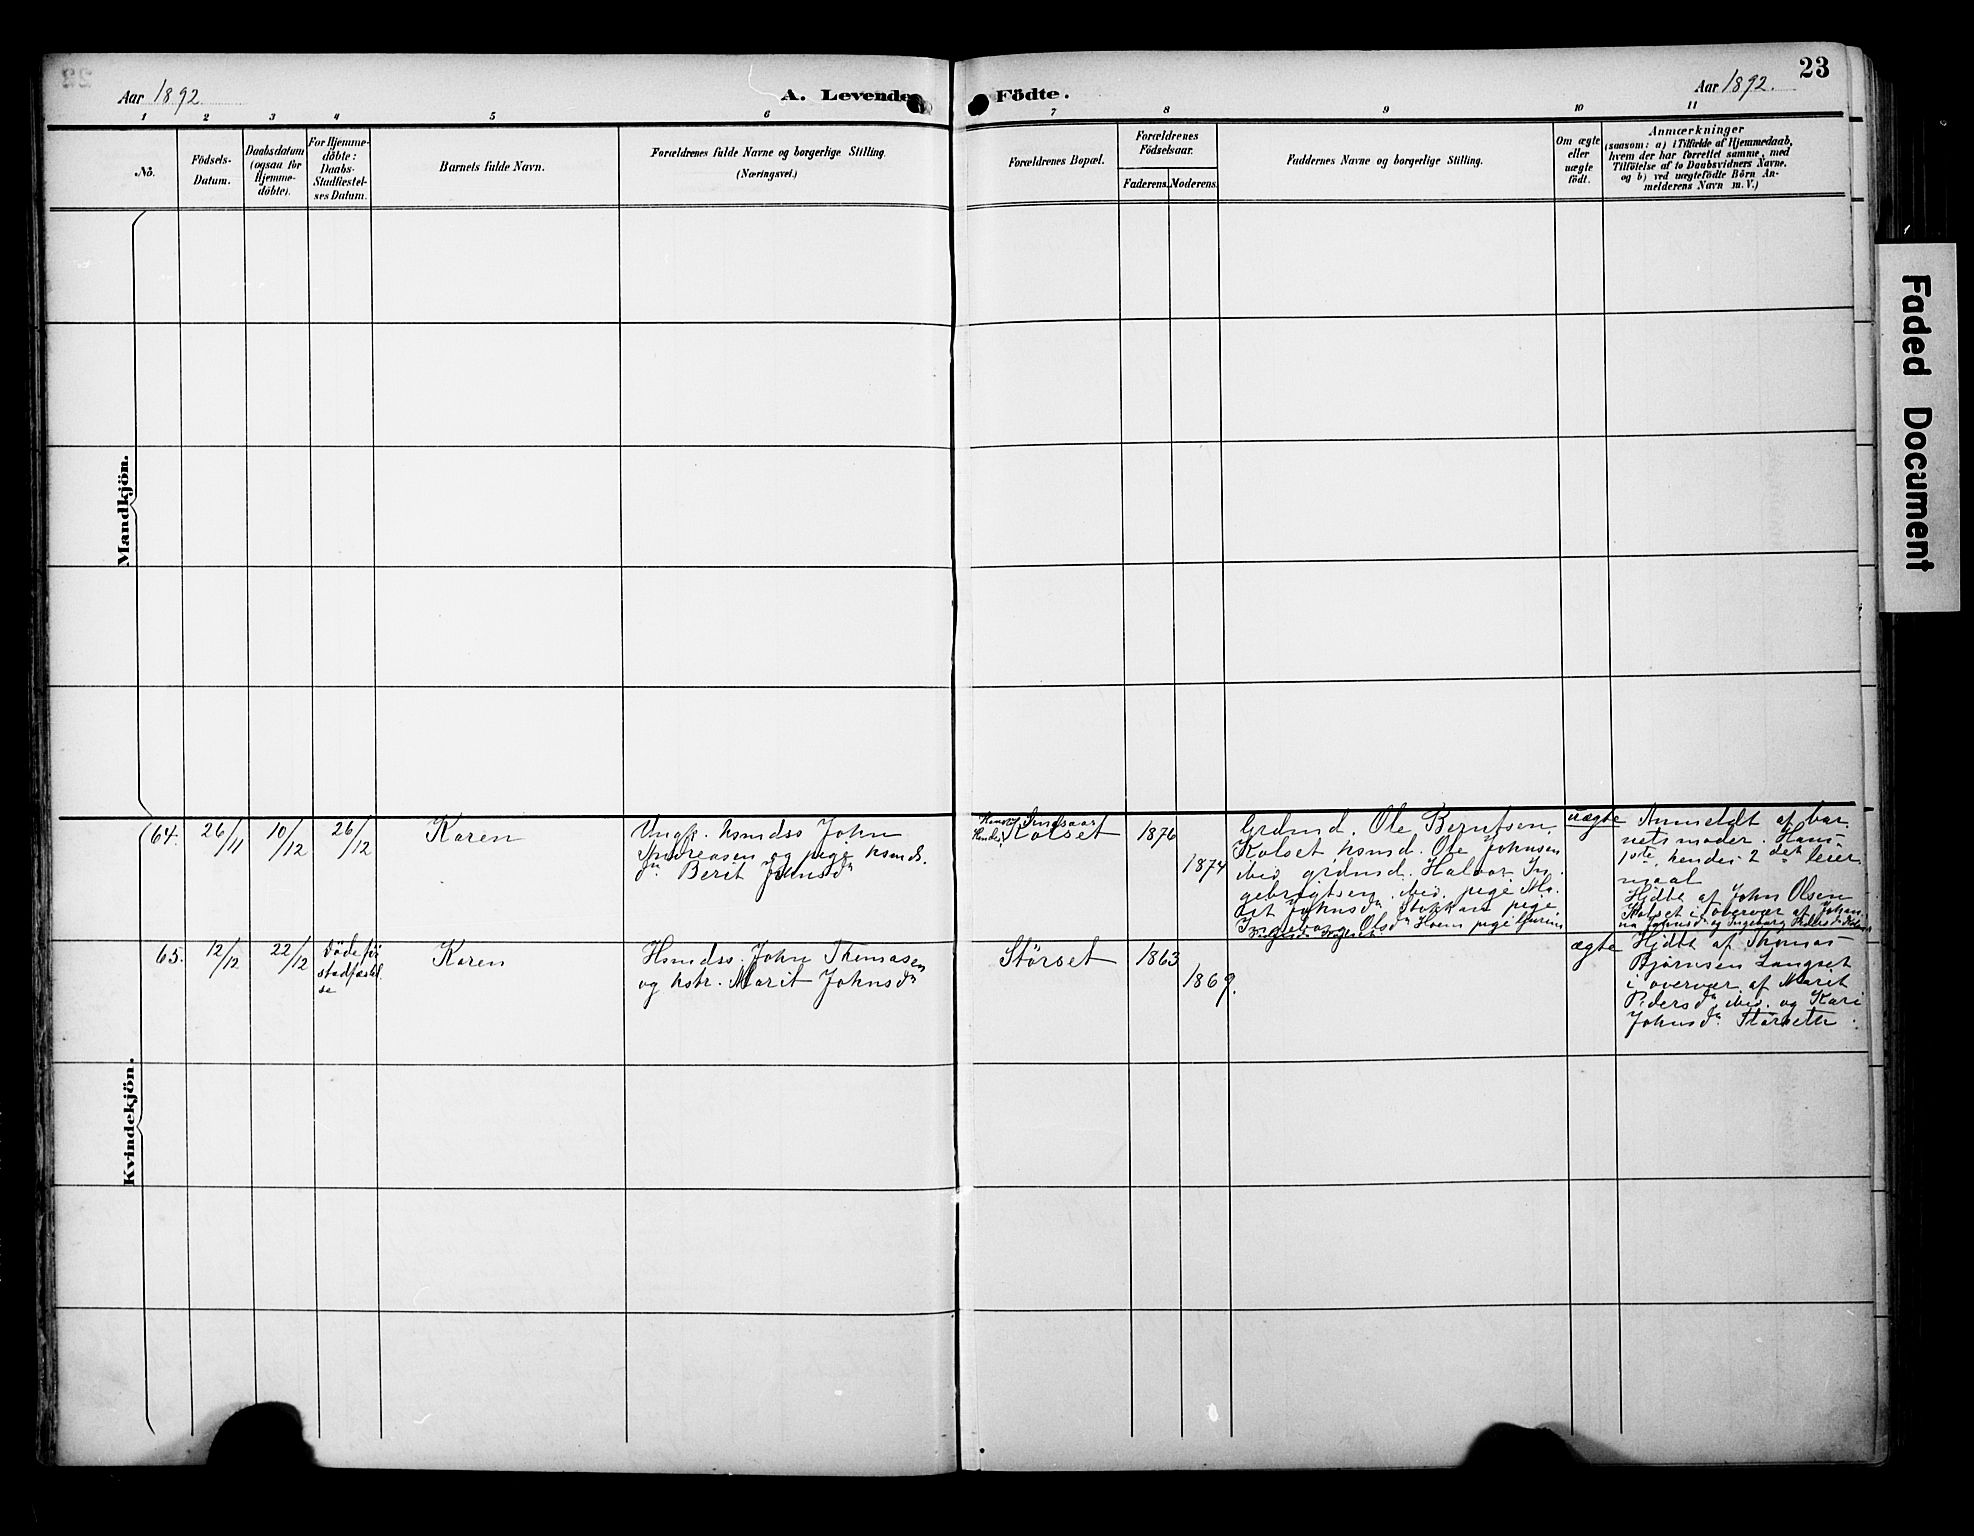 23
Aar 1892.
A. Levende Födte.
Aar 1892.
1 2 3 4 5 6 7 8 9 10 11
No.
Födsels-
Datum.
Daabsdatum
(ogsaa for
Hjemme-
döbte).
For Hjemme-
döbte:
Daabs-
Stadfæstel-
ses Datum.
Barnets fulde Navn.
Forældrenes fulde Navne og borgerlige Stilling.
(Næringsvei.)
Forældrenes Bopæl.
Forældrenes
Födselsaar.
Faderens.
Moderens.
Faddernes Navne og borgerlige Stilling.
Om ægte
eller
uægte
födt.
Anmærkninger
(saasom: a) i Tilfælde af Hjemmedaab,
hvem der har forrettet samme, med
Tilföielse af to Daabsvidners Navne,
og b) ved uægtefödte Börn An-
melderens Navn m. V.)
Mandkjön.
Kvindekjön.
64.
26/11
10/12
26/12
Karen
Ungk. hsmdss John
Andreasen og pige hsmds.
dn. Berit Johnsdn
Singsaas
Kolset
1876
1874
Grdmd. Ole Berntsen
Kolset hsmd. Ole Johnsen
ibid. grdmd. Halvor In-
gebrigtsen ibid. pige Ma-
rit Johnsdn Stokkan pige
Ingeborg Olsdn Hoem pige Guru
uægte
Anmeldt af bar
nets moder. Hans
1ste, hendes 2det leier
maal
Hjdbt af John Olsen
Kolset i overvær af Johan-
na Johnsdn og Ingeborg
65.
12/12
22/12
Döde för
stadfæstel
se
Karen
Hsmdss. John Thomasen
og hstr. Marit Johnsdn
Störset
1863
1869.
ægte
Hjdbt af Thomas
Bjørnsen Langset
i overvær af Marit
Pedersdn ibid. og Kari
Johnsdn Størseth.
Faded Document